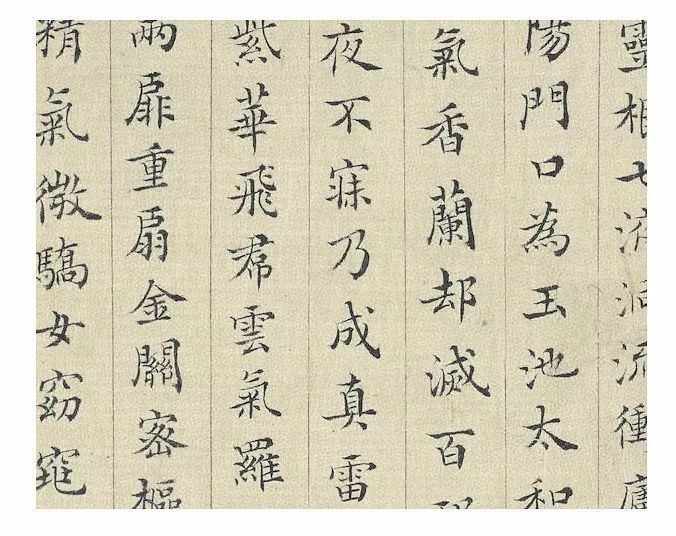 七流
陽門口為玉池太和
氣香蘭却滅百
夜不寐乃成真雷
紫華飛帬雲氣羅
兩扉重扇金關密樞
精氣微驕女窈窕